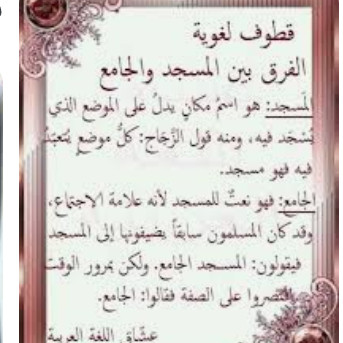 قطوف لغوية
الفرق بين المسجد والجامع
المَسجد: هو اسمُ مكانٍ يدلُ على الموضع الذي
يُسْجَد فيه، ومنه قول الزَّجاج: كلُّ موضعٍ يُتعبَّدُ
فيه فهو مسجد.
الجامع: فهو نعتٌ للمسجد لأنه علامة الاجتماع،
وقد كان المسلمون سابقاً يضيفونها إلى المسجد
فيقولون: المسجد الجامع. ولكن بمرور الوقت
اقتصروا على الصفة فقالوا: الجامع.
عشّاق اللغة العربية